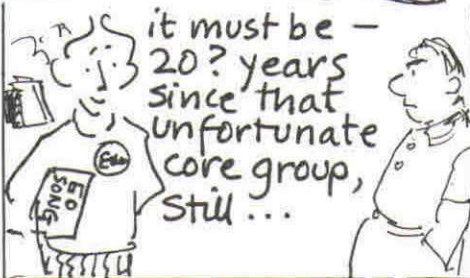 it must be –
20? years
since that
unfortunate
core group,
Still ...
EO
SONG